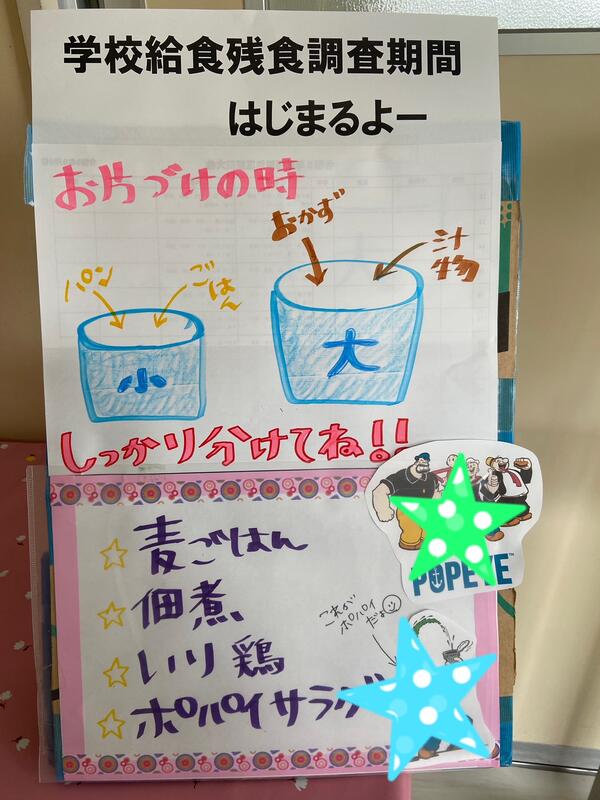 学校給食残食調査期間
はじまるよー
お片づけの時
パン
ごはん
小
おかず
汁物
大
しっかり分けてね!!
☆麦ごはん
☆佃煮
☆いり鶏
☆ポパイサラダ
POPEYE™
これが
ポパイ
だよ